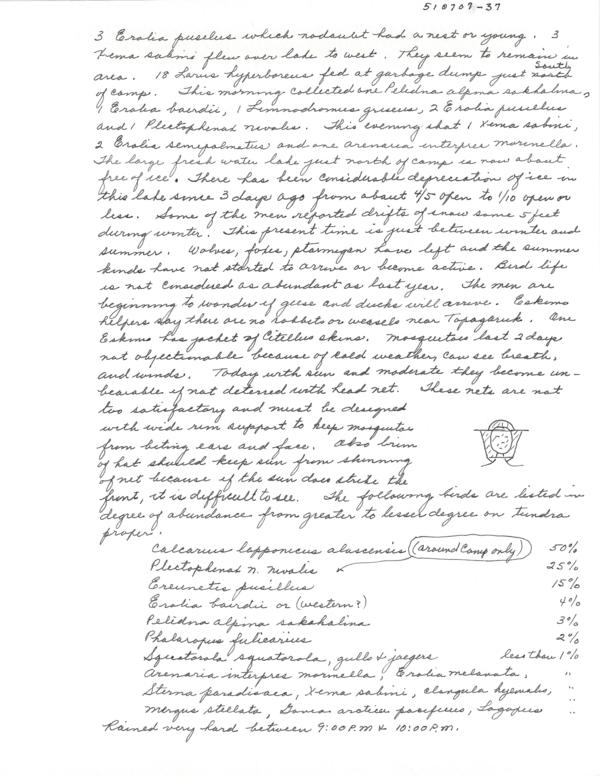 510707-37
3 Erolia puselus which nodoubt had a nest or young. 3
Xema sabini flew over lake to west. They seem to remain in
area. 18 Larus hyperboreus fed at garbage dump just north South
of camp. This morning collected one Pelidna alpina sakhalina,
1 Erolia bairdii, 1 Limnodromus griseus, 2 Erolia pusillus
and 1 Plectophenax nivalis. This evening shot 1 Xema sabini,
2 Erolia semepalmatus and one arenaria interpres morinella.
The large fresh water lake just north of camp is now about
free of ice. There has been considerable depreciation of ice in
this lake since 3 days ago from about 4/5 open to 1/10 open or
less. Some of the men reported drifts of snow some 5 feet
during winter. This present time is just between winter and
summer. Wolves, foxes, ptarmegan have left and the summer
kinds have not started to arrive or become active. Bird life
is not considered as abundant as last year. The men are
beginning to wonder if geese and ducks will arrive. Eskemo
helpers say there are no rabbits or weasels near Topagaruk. One
Eskimo has jacket of Citellus skins. Mosquitoes last 2 days
not objectionable because of cold weather, can see breath,
and winds. Today with sun and moderate they become un-
bearable if not deterred with head net. These nets are not
too satisfactory and must be designed
with wide rim support to keep mosquitoe
from biting ears and face. Also brim
of hat should keep sun from shinning
of net because if the sun does strike the
front, it is difficult to see. The following birds are listed in
degree of abundance from greater to lesser degree on tundra
proper.
Calcarius lapponicus alascensis (around Camp only) 50%
Plectophenax n. nivalis 25%
Ereunetes pusillus 15%
Erolia bairdii or (western?) 4%
Pelidna alpina sakahalina 3%
Phalaropus fulicarius 2%
Squatarola squatorola, gulls & jaegers less than 1%
Arenaria interpres morinella, Erolia melanota, "
Sterna paradisaea, Xema sabini, clangula hyemalis, "
Mergus stellata, Gavia arctica pacificus, Lagopus "
Rained very hard between 9:00 P.M & 10:00 P.M.